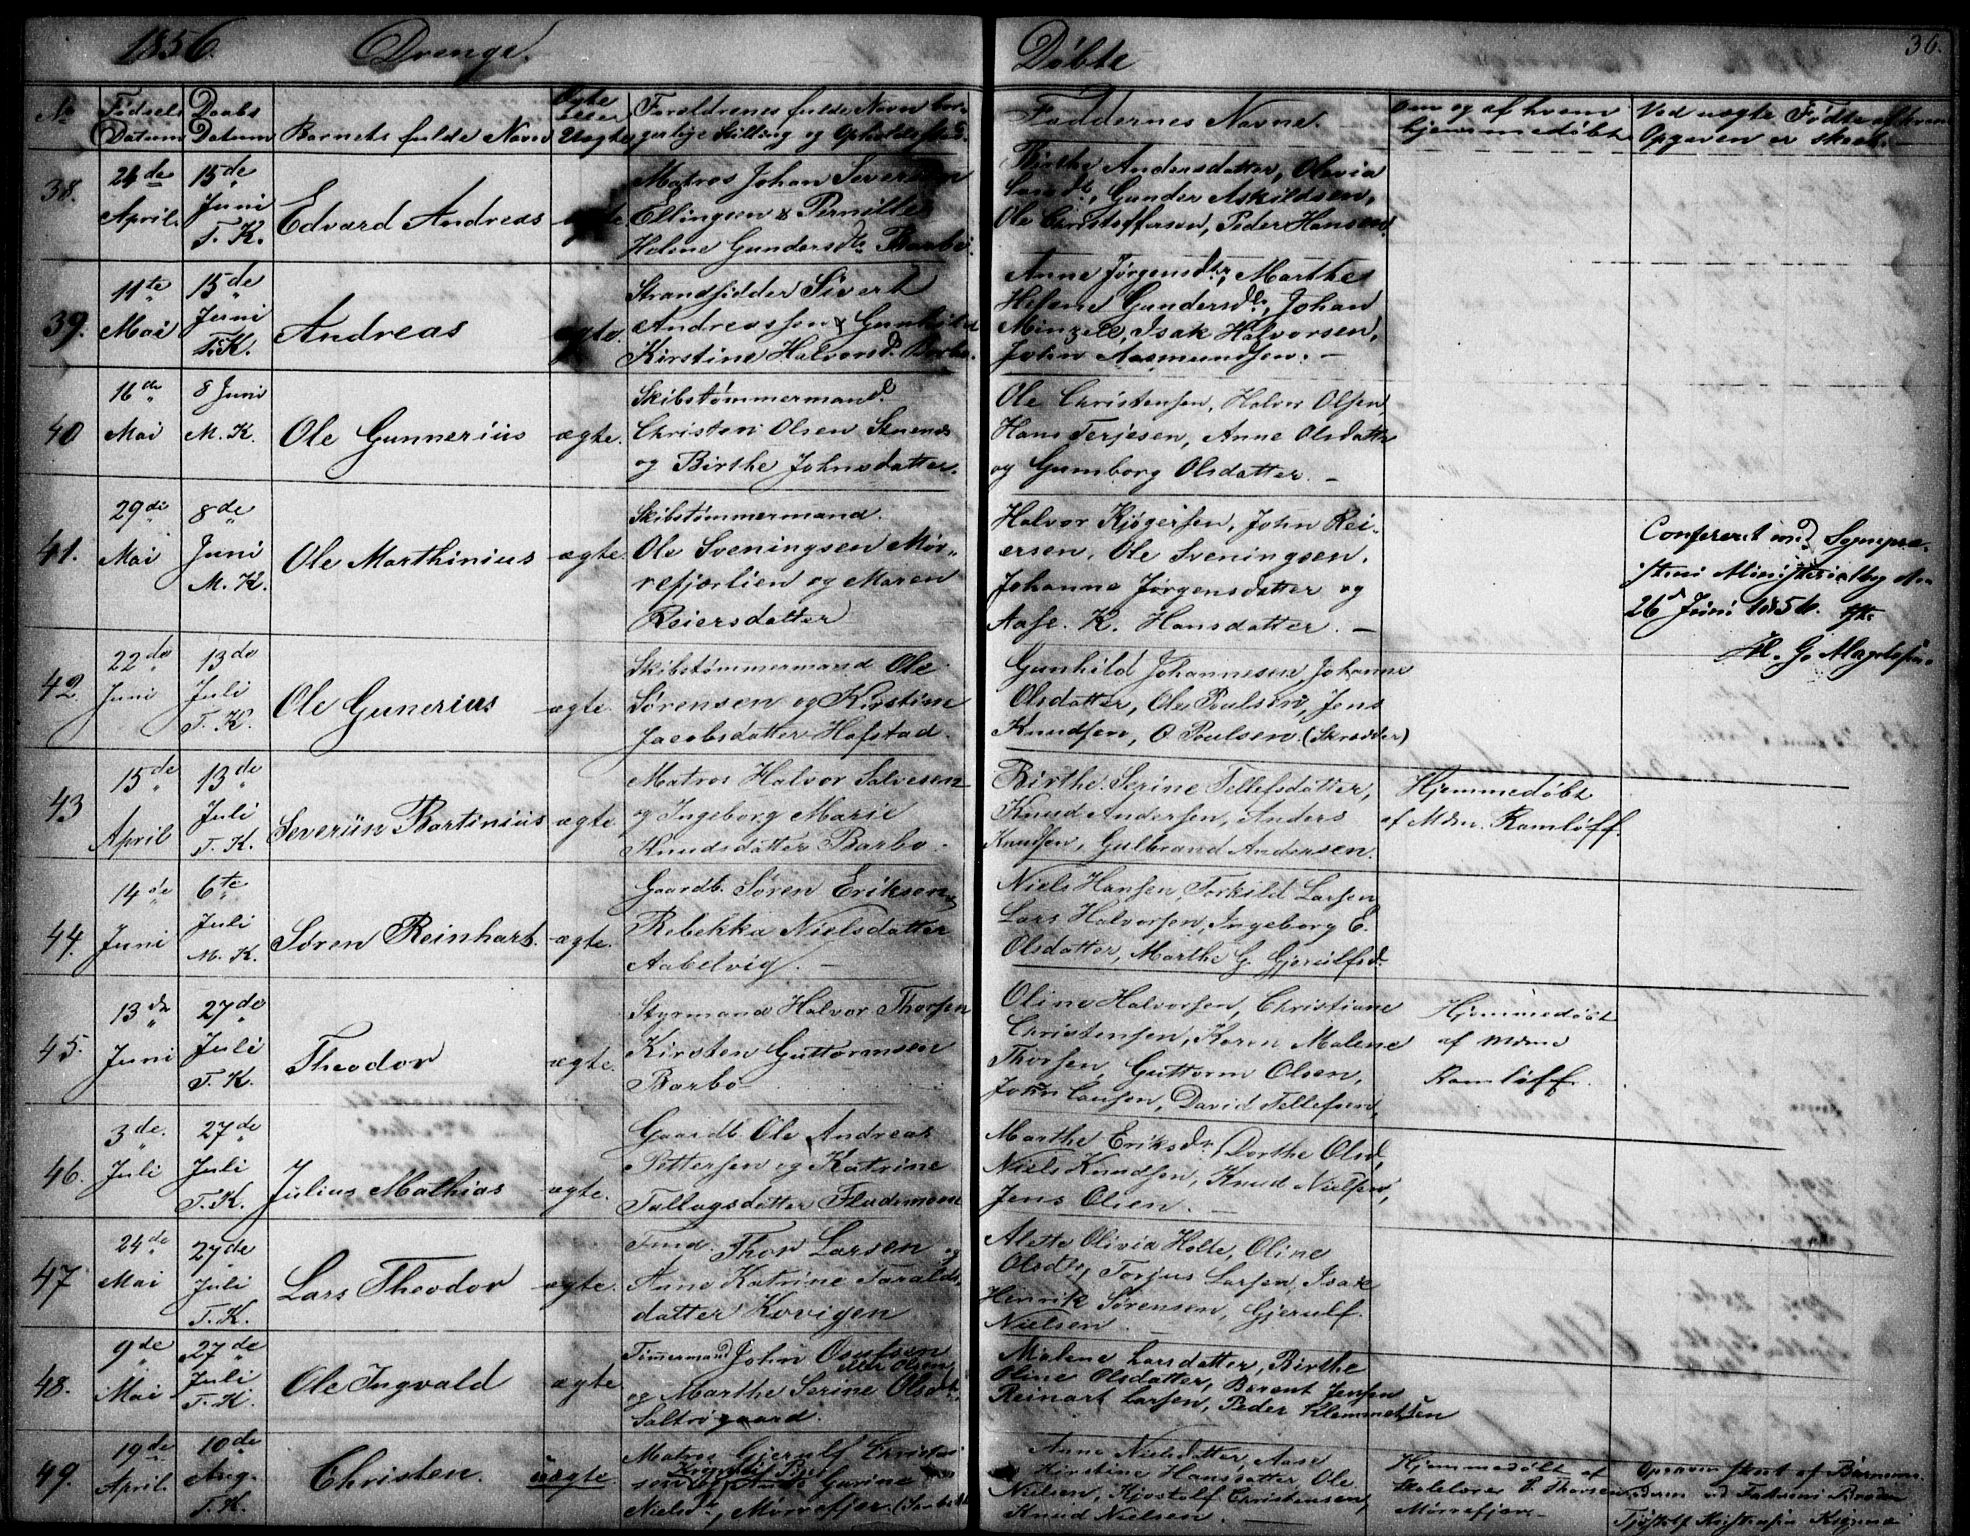 1856. Drenge. Døbte 36.
No Fødsels Datum Daabs Datum Barnets fulde Navn Ægte eller Uægte Forældrenes fulde Navn borgerlige Stilling og Opholdssted. Faddernes Navne. Om og af hvem hjemmedøbt Ved uægte Fødte
Opgaven er skeet.
38. 24de April. 15de Juni T. K. Edvard Andreas ægte
Matros Johan Seversen
Ellingsen & Pernille
Helene Gundersdtr Barbo.
Birthe Andersdatter, Olavia
Gunder Askildsen,
Ole Christoffersen, Peder Hansen.
39. 11te Mai 15de Juni T.K. Andreas ægte.
Strandsidder Sivert
Andreassen & Gunhild
Kirstine Halvorsd. Barbo.
Anne Jørgensdtr, Marthe
Helene Gundersdtr, Johan
Isak Halvorsen,
John Aasmundsen. –
40 16de Mai 8 Juni M. K. Ole Gunnerius ægte.
Skibstømmermand.
Christen Olsen
og Birthe Johnsdatter.
Ole Christensen, Halvor Olsen,
Hans Terjesen, Anne Olsdatter
og Gumborg Olsdatter. –
41. 29de Mai 8de Juni M. K. Ole Marthinius ægte.
Skibstømmermand.
Ole Sveningsen Mør-
refjærlien og Maren
Reiersdatter
Halvor Kjøgersen, John Rei-
ersen, Ole Sveningsen,
Johanne Jørgensdatter og
Aase. K. Hansdatter. –
Confereret med
Ministerialbog
26 Juni 185
42. 22de Juni 13de Juli T. K. Ole Gunerius ægte.
Skibstømmermand Ole
Sørensen og Kirstine
Jacobsdatter Hafstad.
Gunhild Johannesen, Johanne
Olsdatter, Ole Poulsen, Jens
Knudsen, O Poulsen. (Skrædder)
43 15de April 13de Juli T. K. Severiin Martinius ægte
Matros Halvor Salvesen
og Ingeborg Marie
Knudsdatter Barbo.
Birthe Serine Tellefsdatter,
Knud Andersen, Anders
Knudsen, Gulbrand Andersen.
Hjemmedøbt
af Mdm. Ramløff.
44. 14de Juni 6te Juli M. K. Søren Reinhart. ægte.
Gaardb. Søren Eriksen
Rebekka Nielsdatter
Aabelvig. –
Niels Hansen, Torkild Larsen
Lars Halvorsen, Ingeborg E.
Olsdatter, Marthe G. Gjerulfsd.
45. 13de Juni 27de Juli T. K. Theodor ægte.
Styrmand Halvor Thorsen
Kirsten Guttormsen
Barbo
Oline Halvorsen, Christiane
Christensen, Karen Malene
Thorsen, Guttorm Olsen,
John David Tellefsen,
Hjemmedøbt
af Mdme
Ramløff.
46. 3de. Juli 27de Juli T. K. Julius Mathias ægte.
Gaardb. Ole Andreas
Pettersen og Katrine
Tallagsdatter
Marthe Eriksdr, Dorthe Olsd,
Niels Knudsen, Knud Nielsen,
Jens Olsen. –
47. 24de Mai 27de Juli T. K. Lars Theodor ægte.
Thor Larsen og
Anne Katrine Taralds-
datter Kovigen
Alette Olivia Holte, Oline
Olsdtr, Torjus Larsen, Isak
Henrik Sørensen, Gjerulf
Nielsen.
48. 9de Mai 27de Juli T. K. Ole Ingvald ægte
Timmermand John Osufsen
eller Olsen
og Marthe Serine Olsdt.
Saltrøgaard.
Malene Larsdatter, Birthe
Oline Olsdatter, Berent Jensen
Reinart Larsen, Peder Klemmetsen
49. 19de April. 10de Aug. T. K. Christen. uægte.
Matros Gjerulf Christen-
sen Gurine
Nielsdtr, Mørrefjær
Anne Nielsdatter, Aase
Kirstine Hansdatter Ole
Nielsen, Kjøstolf Christensen,
Knud Nielsen. –
Hjemmedøbt af
Skolelærer P. Thorsen,
Mørrefjær